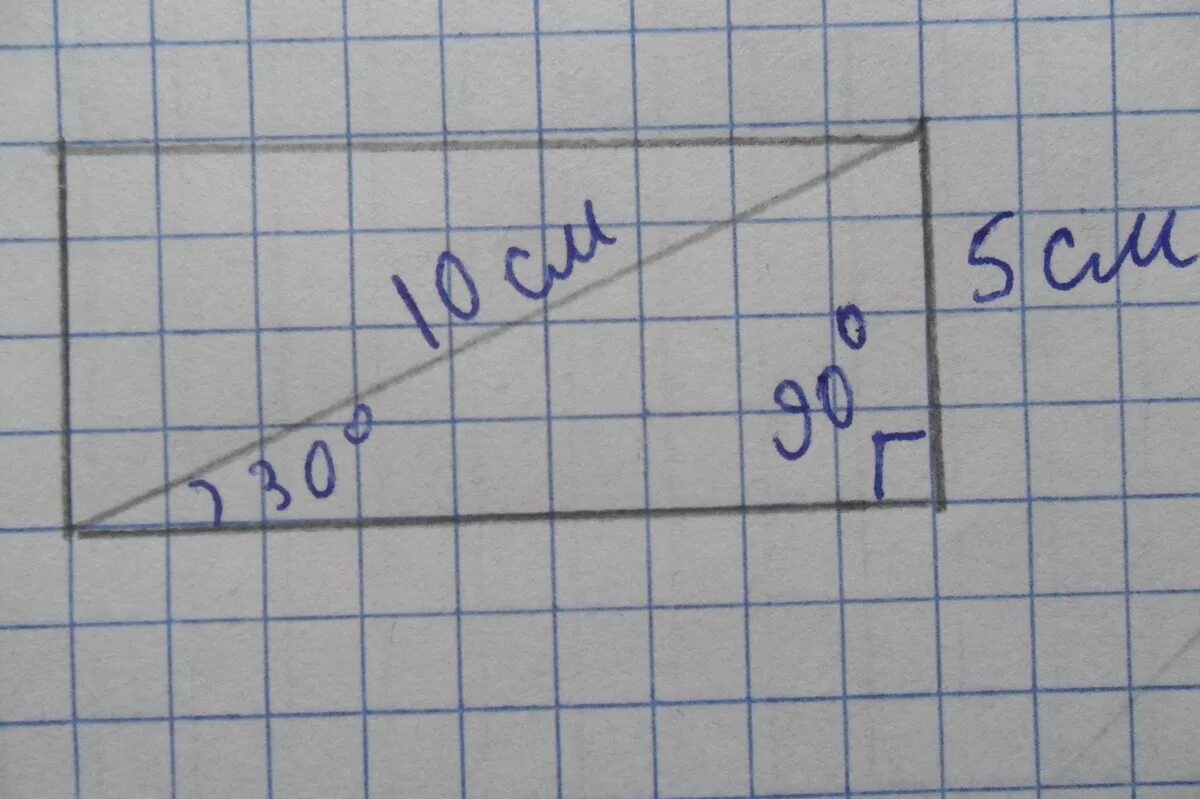 10 см
5 см
30°
90°